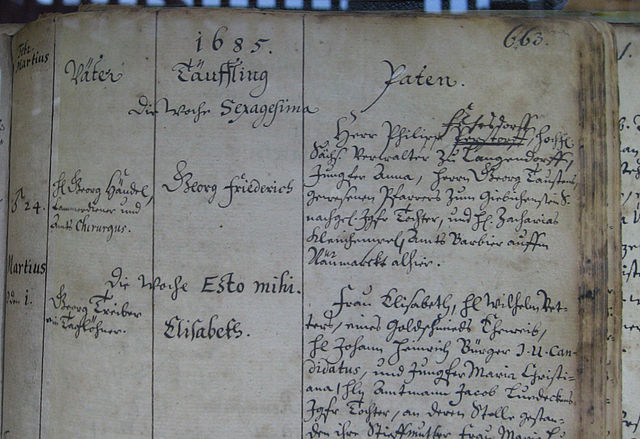 Febr.
Martius
1685.
663.
Väter
Täuffling
Paten.
Die Woche Sexagesima
Herr Philipp Fehrsdorff, Hochfl.
Sächs. Verwalter zu Langendorff,
Jungfer Anna, Herrn Georg Taustens
gewesenen Pfarrers zum Giebichenstein
nachgel. Jgfr Tochter, und H. Zacharias
Kleinhempel, Amts Barbier auffm
Neumarckt alhier.
24.
H. Georg Händel,
Cammerdiener und
Amts Chirurgus.
Georg Friederich
Martius
Die Woche Esto mihi.
den 1.
Georg Treiber
ein Taglöhner.
Elisabeth.
Frau Elisabeth, H. Wilhelm Vet-
ters, eines Goldschmieds Eheweib,
H. Johann Heinrich Bürger J. U. Can-
didatus, und Jungfer Maria Christi-
ana, Hln Amtmann Jacob Lueders
Jgfr Tochter, an deren Stelle gestan-
den ihre Stieffmutter Frau Maria